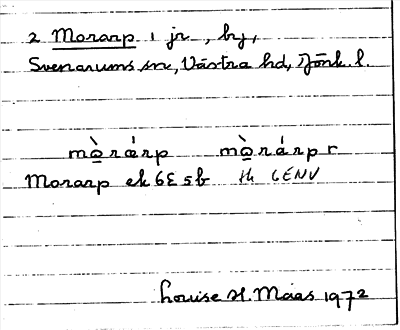 2 Morarp 1 jr, by,
Svenarums sn, Västra hd, Jönk. l.
mò̲rárp mò̲rárp r
Morarp ek 6E5b th GENV
Louise H. Maas 1972